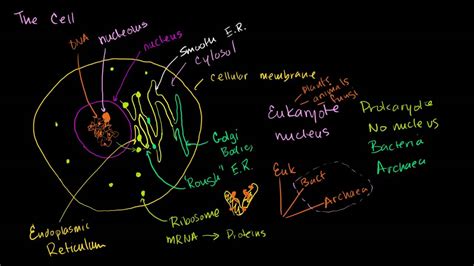 The Cell
DNA
nucleolus
nucleus
Smooth E.R.
Cytosol
cellular membrane
plants
animals
fungi
Eukaryote
nucleus
Prokaryote
No nucleus
Bacteria
Archaea
Golgi
Bodies
"Rough" E.R.
Ribosome
mRNA → Proteins
Endoplasmic
Reticulum
Euk
Bact
Archaea